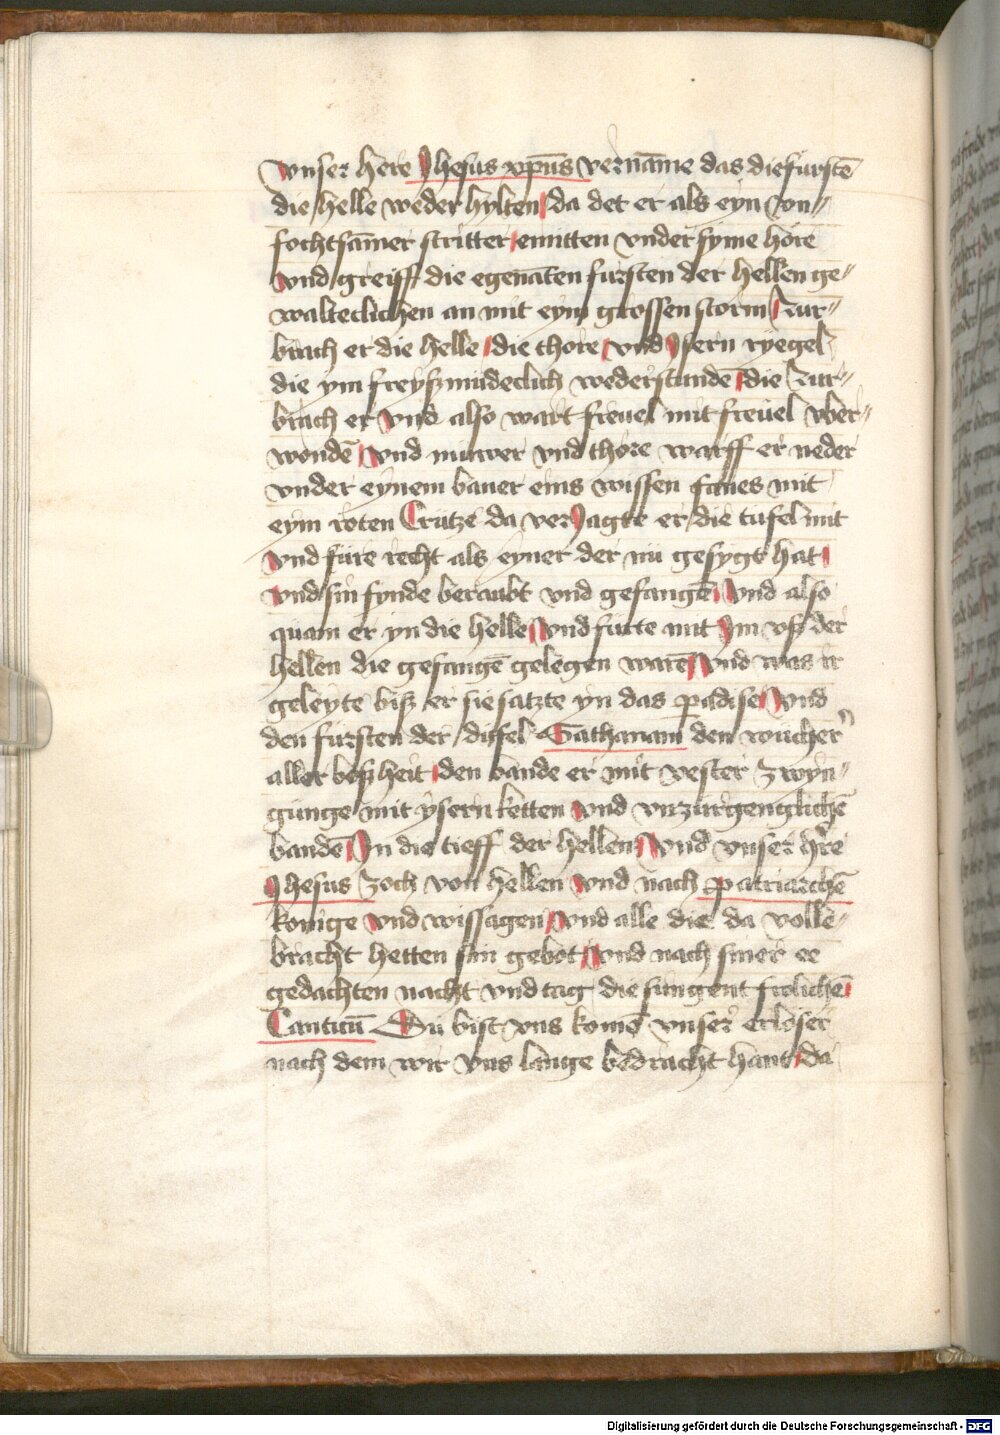 vnser here Jhesus xp̄us vernāme das die furstē
die helle weder hylten da det er als eyn von〃
fochtsāmer stritter emitten vnder syme hore
vnd greiff die egenāten fursten der hellen ge〃
walteclichen an mit eym grossen storm zur〃
brach er die helle die thore vnd Jsern ryegel
die ym freyszmūdeclich wederstundē die zur〃
brach er vnd also wart freuel mit freuel vber〃
wondē vnd muwer vnd thore warff er neder
vnder eynem baner eins wissen fanes mit
eym roten Crutze da verJagte er die tufel mit
vnd fure recht als eyner der nu gesygt hat
vnd sin fynde beraubt vnd gefangē vnd also
quam er yn die helle vnd furte mit Jm vsz der
hellen die gefangē gelegen warē vnd was ir
geleyte bisz er sie satzte yn das padise vnd
den fursten der dufel Sathanam den wucher
aller beszheit den bande er mit vester zwyn〃
gunge mit ysern ketten vnd vnzurgenglichē
bandē Jn die tieff der hellen vnd vnser hre
Jhesus zoch von hellen vnd nach patriarchē
konige vnd wissagen vnd alle die da volle〃
bracht hetten sin gebot vnd nach siner ee
gedachten nacht vnd tag die sungent frolichē
Canticū Du bist vns komē vnser erloser
nach dem wir vns lange bedracht hant da
Digitalisierung gefördert durch die Deutsche Forschungsgemeinschaft - DFG